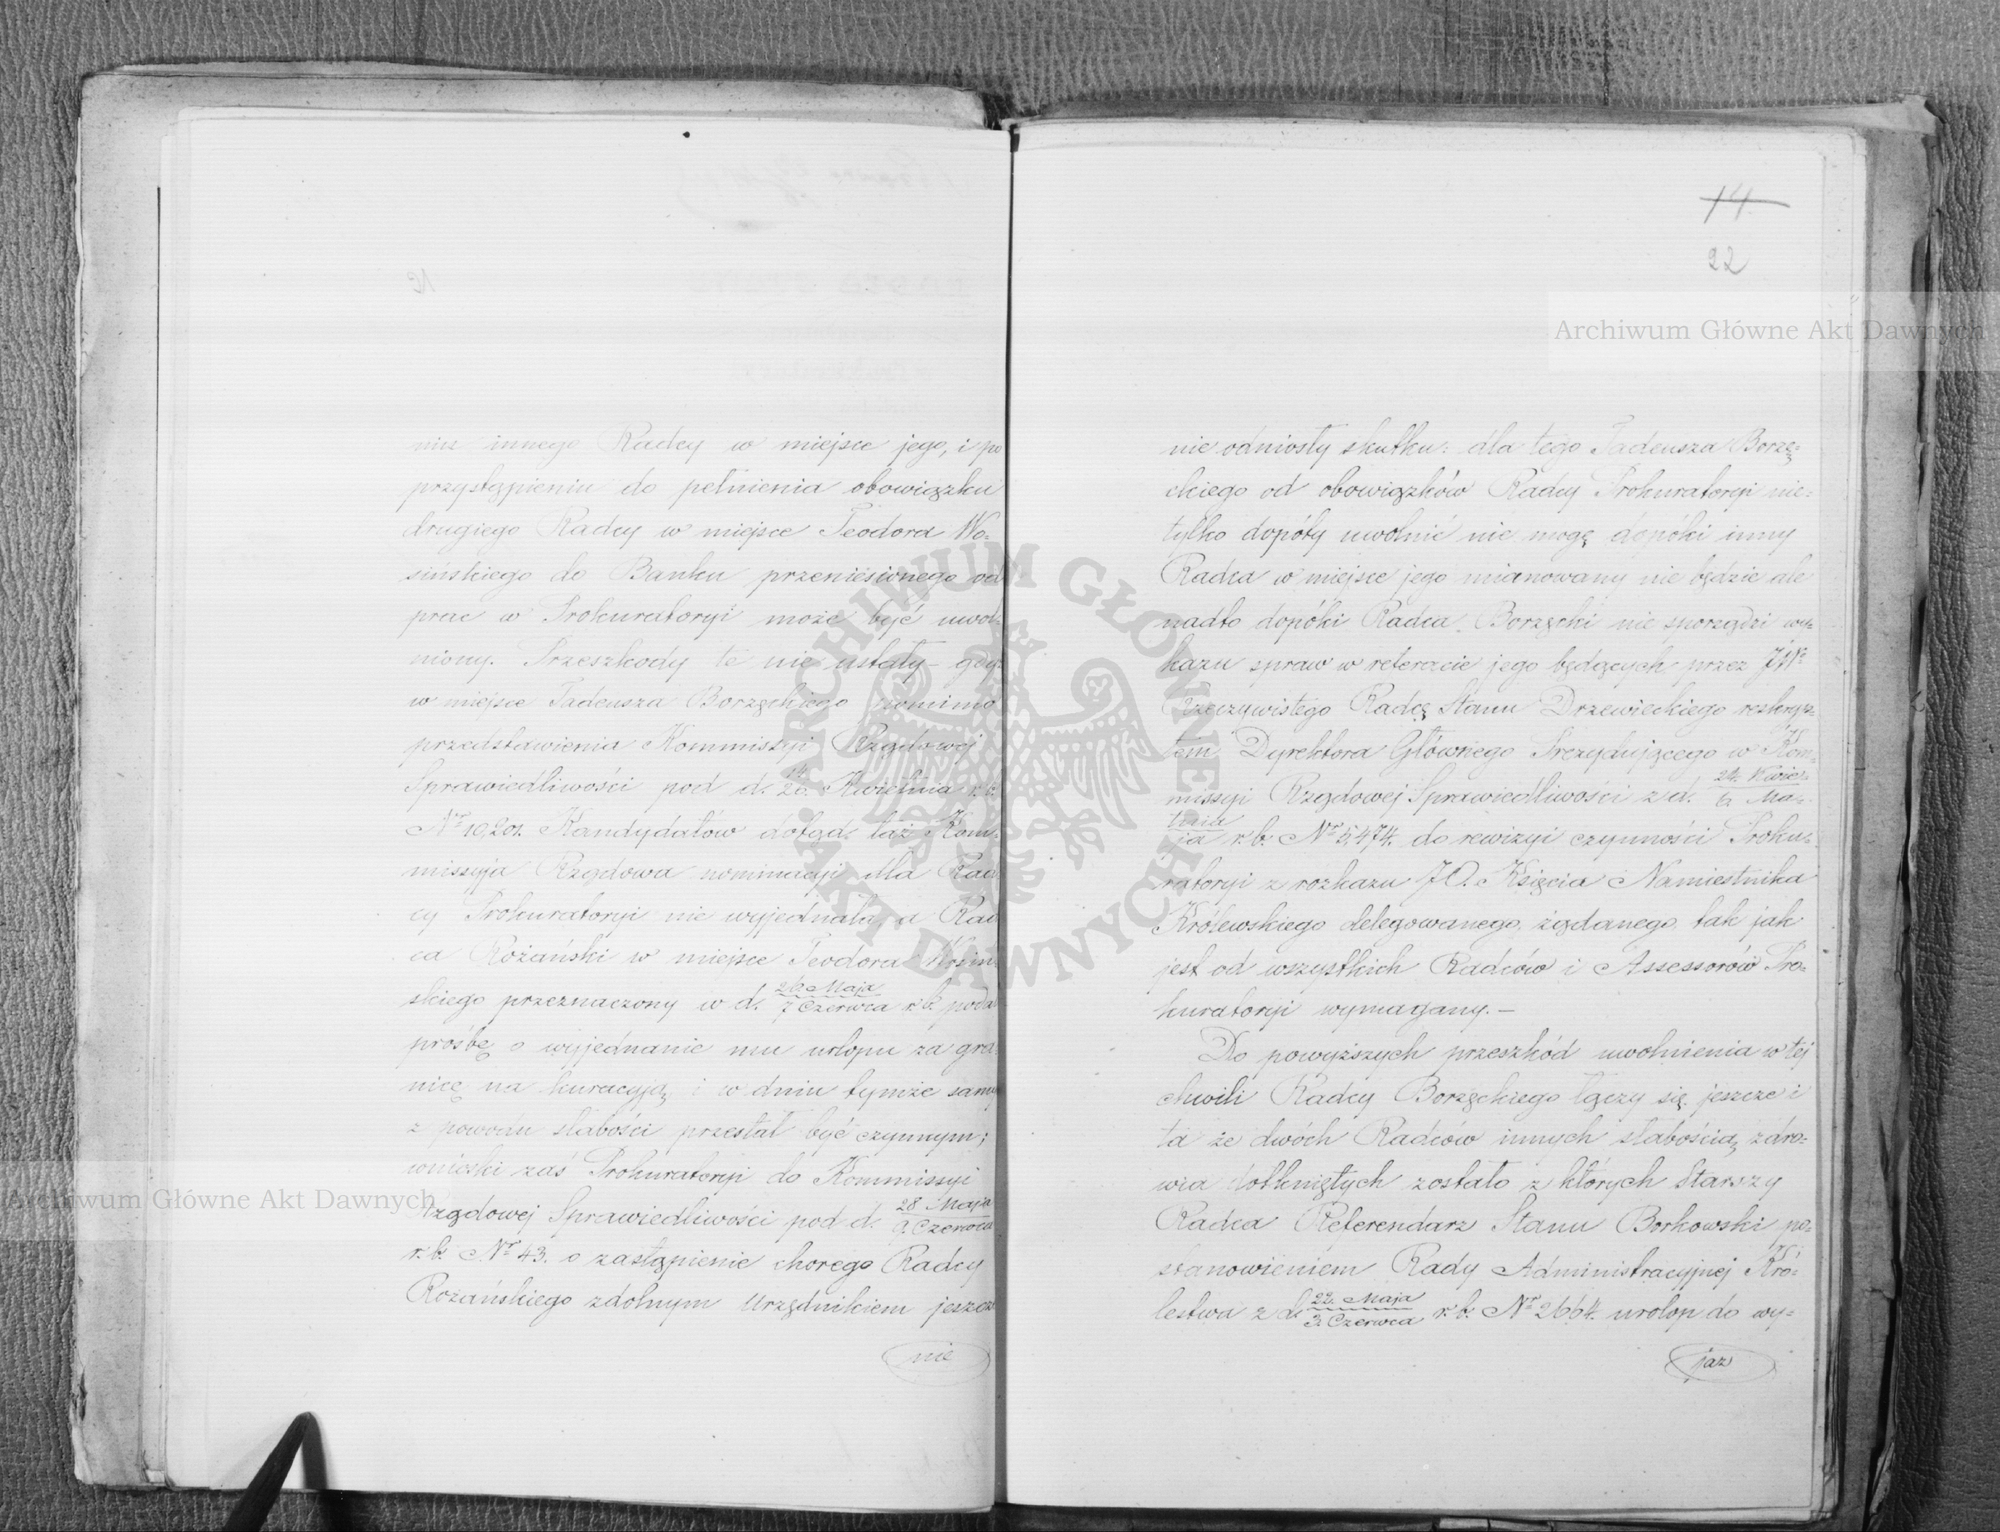 niu innego Radcy w miejsce jego, i po
przystąpieniu do pełnienia obowiązku
drugiego Radcy w miejsce Teodora Wo-
sińskiego do Banku przeniesionego od
prac w Prokuratoryi może być uwol-
niony. Przeszkody te nie ustały gdy
w miejsce Tadeusza Borzęckiego pomimo
przedstawienia Kommissyi Rządowej
Sprawiedliwości pod d. 14/26 Kwietnia r. b.
Nr 10,201. Kandydatów dotąd taż Kom-
missyja Rządowa nominacyi dla Rad-
cy Prokuratoryi nie wyjednała, a Rad-
ca Rożański w miejsce Teodora Wosiń-
skiego przeznaczony w d. 26. Maja/7 Czerwca r. b. podał
prośbę o wyjednanie mu urlopu za gra-
nicę na kuracyją i w dniu tymże samym
z powodu słabości przestał być czynnym;
wnioski zaś Prokuratoryi do Kommissyi
Rządowej Sprawiedliwości pod d. 28 Maja/9. Czerwca
r. b. Nr 43. o zastąpienie chorego Radcy
Rożańskiego zdolnym Urzędnikiem jeszcze
nie
14
22
nie odniosły skutku: dla tego Tadeusza Borzę-
ckiego od obowiązków Radcy Prokuratoryi nie-
tylko dopóty uwolnić nie mogę dopóki inny
Radca w miejsce jego mianowany nie będzie ale
nadto dopóki Radca Borzęcki nie sporządzi wy-
kazu spraw w referacie jego będących przez JW.
Rzeczywistego Radcę Stanu Drzewieckiego reskryp-
tem Dyrektora Głównego Prezydującego w Kom-
missyi Rządowej Sprawiedliwości z d. 24. Kwiet-/6 Ma-
tnia/ja r. b. Nr 5,474. do rewizyi czynności Proku-
ratoryi z rozkazu J.O. Księcia Namiestnika
Królewskiego delegowanego, żądanego, tak jak
jest od wszystkich Radców i Assessorów Pro-
kuratoryi wymagany. —
Do powyższych przeszkód uwolnienia w tej
chwili Radcy Borzęckiego łączy się jeszcze i
ta że dwóch Radców innych słabością zdro-
wia dotkniętych zostało z których Starszy
Radca Referendarz Stanu Borkowski po-
stanowieniem Rady Administracyjnej Kró-
lestwa z d. 22. Maja/3. Czerwca r. b. Nr 2664. urlop do wy-
jaz
Archiwum Główne Akt Dawnych
Archiwum Główne Akt Dawnych
ARCHIWUM GŁÓWNE AKT DAWNYCH